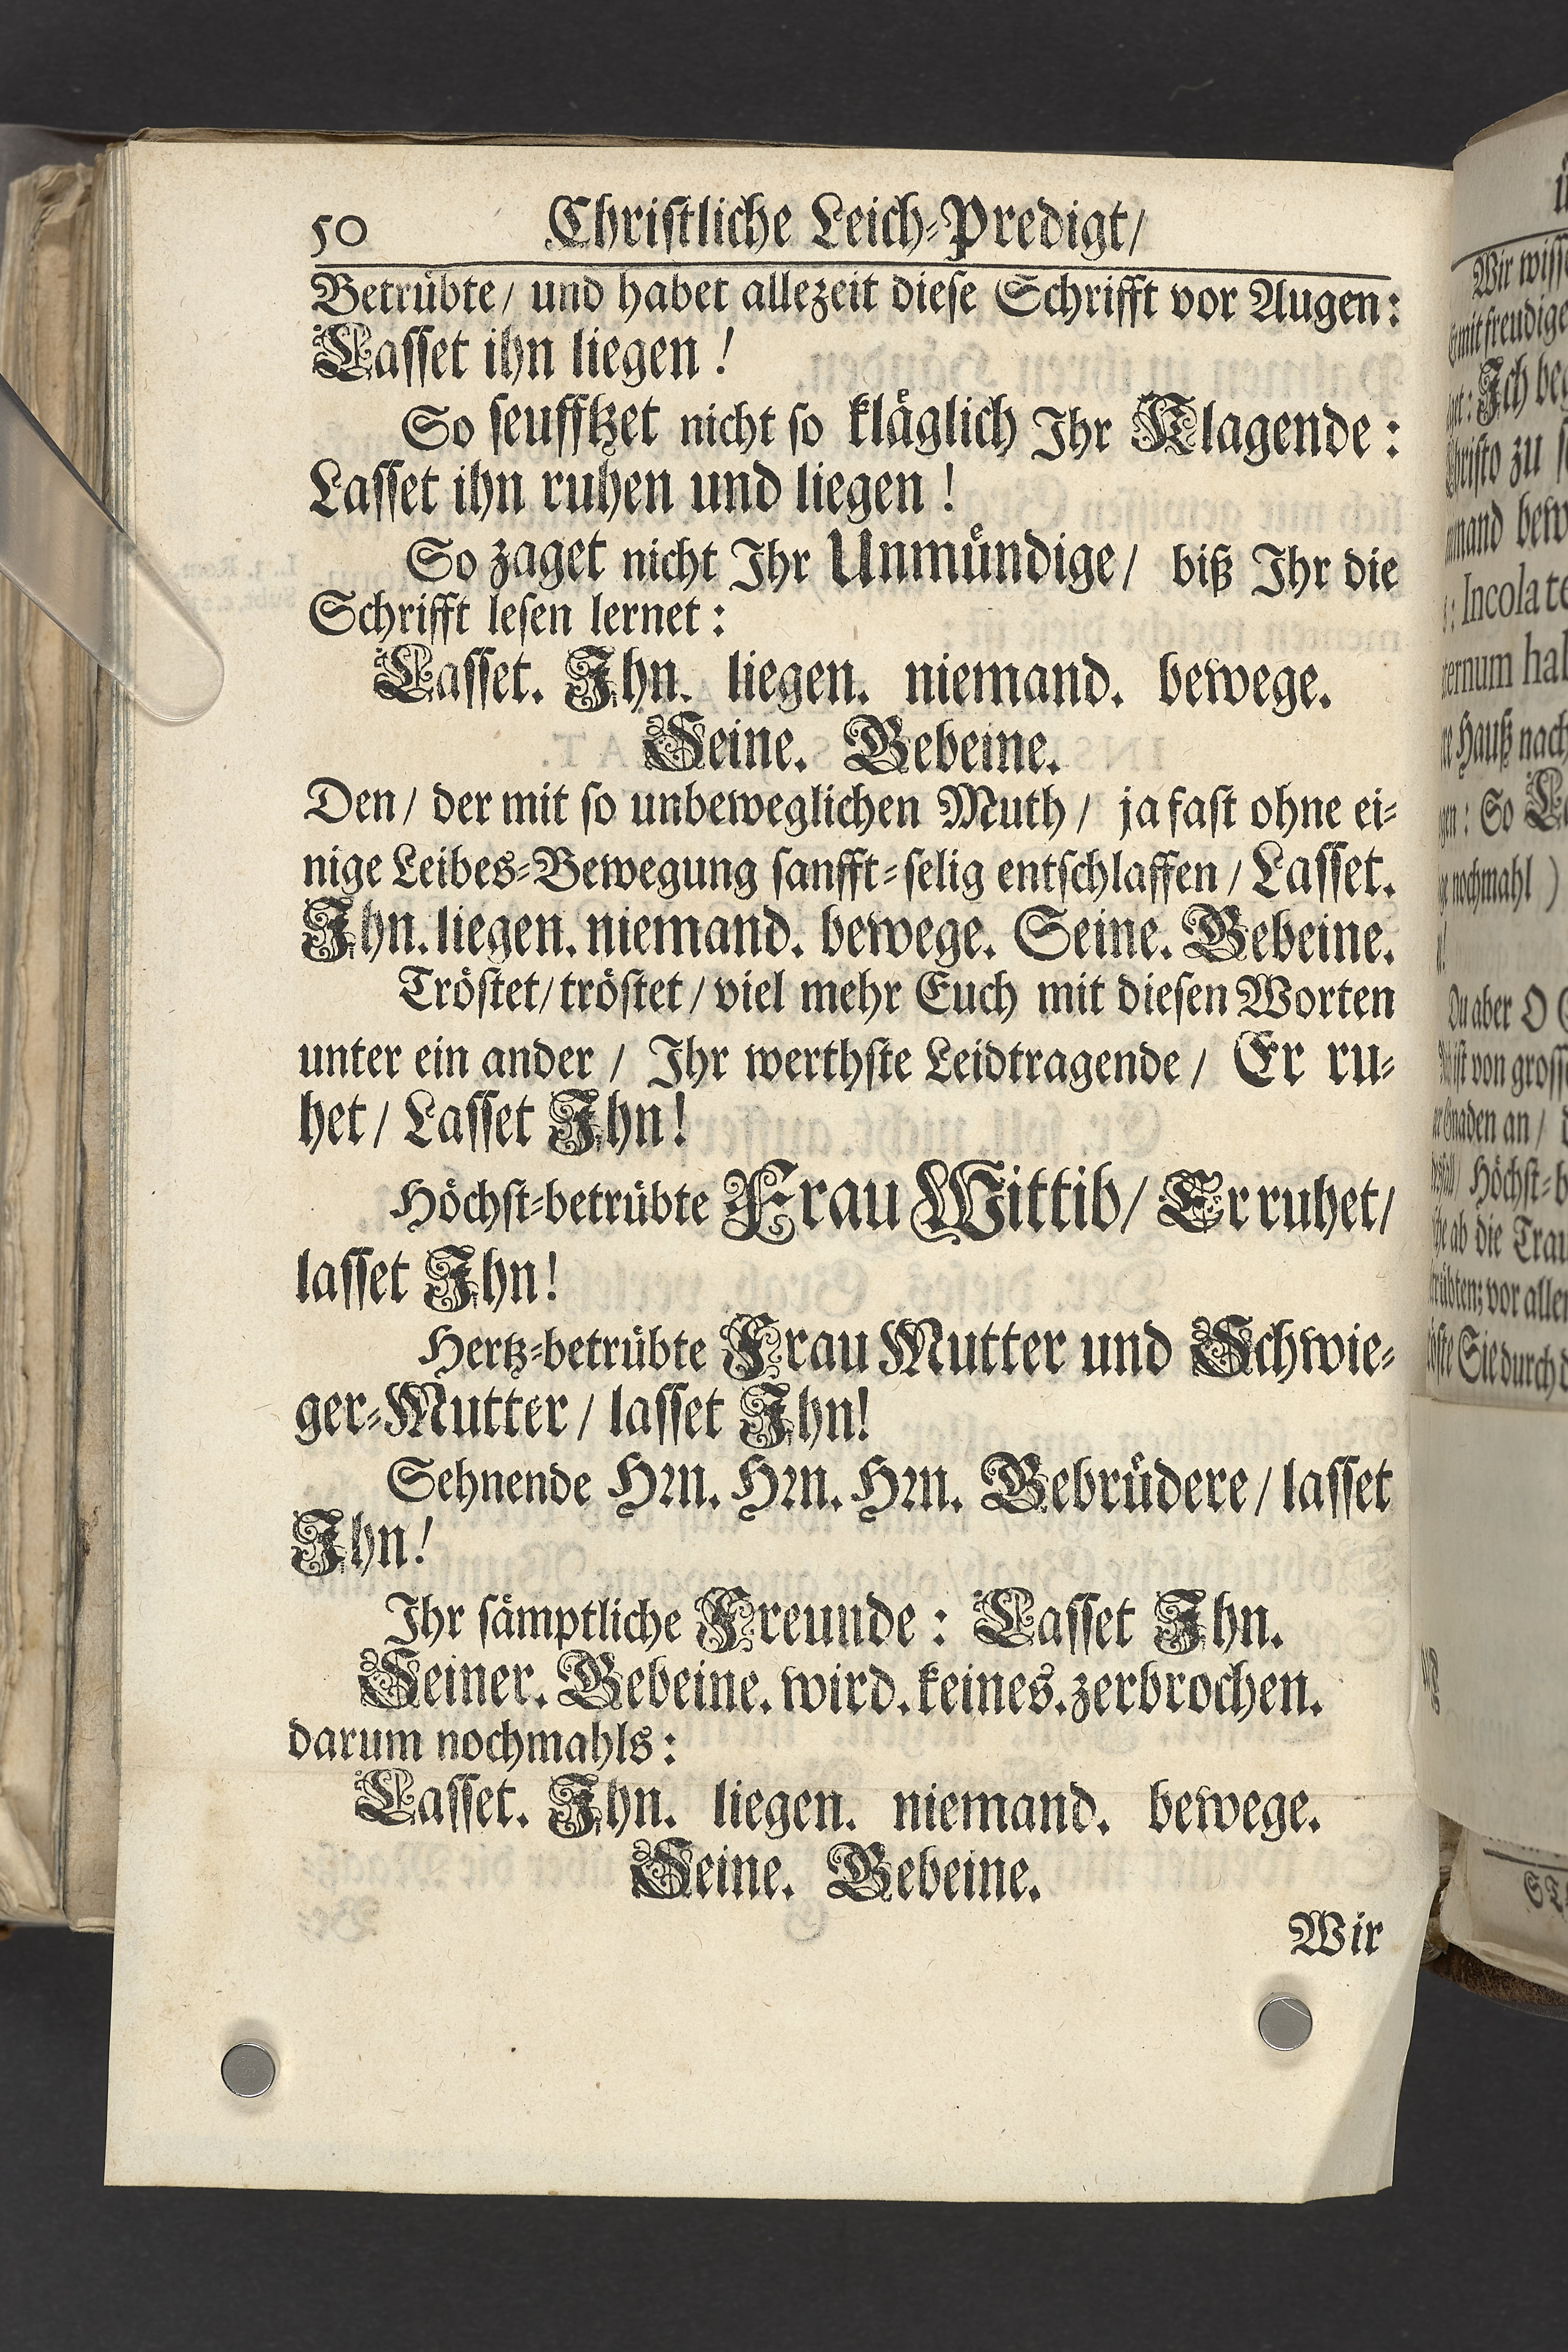 50 Christliche Leich-Predigt/
Betrübte/ und habet allezeit diese Schrifft vor Augen:
Lasset ihn liegen!
So seufftzet nicht so kläglich Ihr Klagende:
Lasset ihn ruhen und liegen!
So zaget nicht Ihr Unmündige/ biß Ihr die
Schrifft lesen lernet:
Lasset. Ihn. liegen. niemand. bewege.
Seine. Gebeine.
Den/ der mit so unbeweglichen Muth/ ja fast ohne ei-
nige Leibes-Bewegung sanfft-selig entschlaffen/ Lasset.
Ihn. liegen. niemand. bewege. Seine. Gebeine.
Tröstet/ tröstet/ viel mehr Euch mit diesen Worten
unter ein ander/ Ihr werthste Leidtragende/ Er ru-
het/ Lasset Ihn!
Höchst-betrübte Frau Wittib/ Er ruhet/
lasset Ihn!
Hertz-betrübte Frau Mutter und Schwie-
ger-Mutter/ lasset Ihn!
Sehnende Hrn. Hrn. Hrn. Gebrüdere/ lasset
Ihn!
Ihr sämptliche Freunde: Lasset Ihn.
Seiner. Gebeine. wird. keines. zerbrochen.
darum nochmahls:
Lasset. Ihn. liegen. niemand. bewege.
Seine. Gebeine.
Wir
Wir
mit
Ich
zu
: Incola
Hauß nach
: So
nochmahl )
Du aber O
ist von
Gnaden an/
Höchst-b
ab die
vor
Sie durch